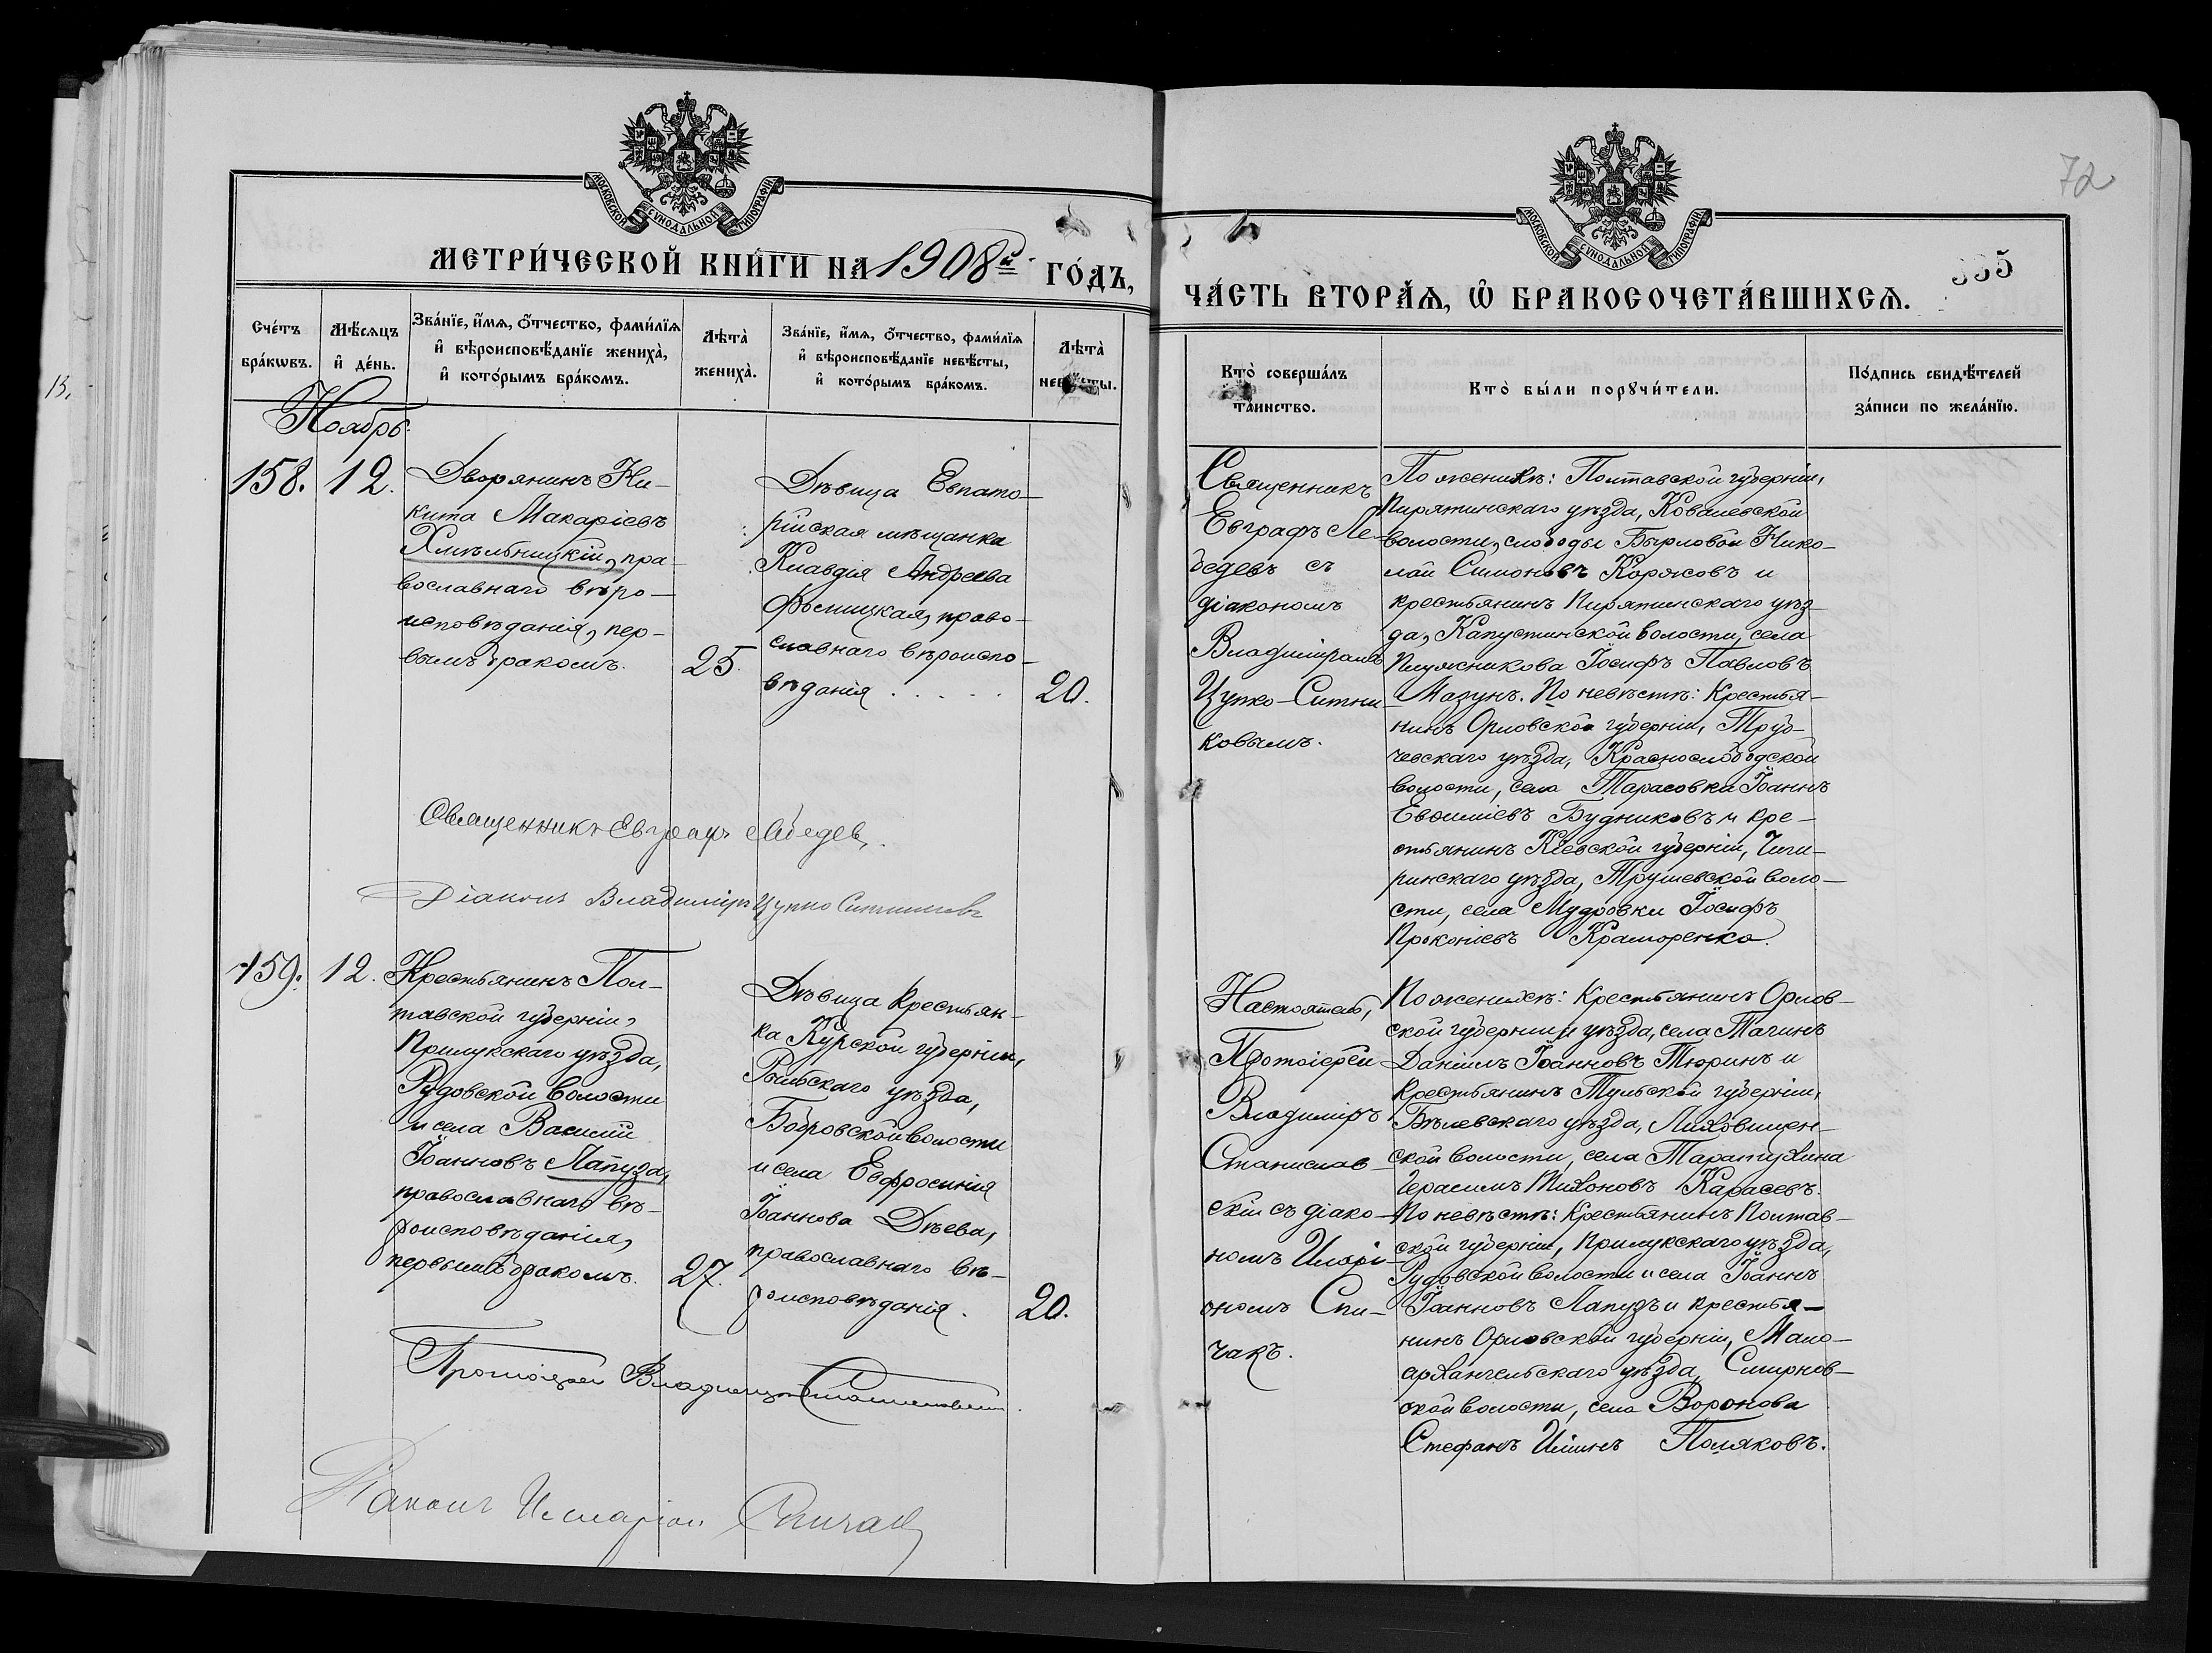 МОСКОВСКОЙ СѴНОДАЛЬНОЙ ТИПОГРАФІИ
МЕТРИ́ЧЕСКОЙ КНИ́ГИ НА 1908й ГО́ДЪ,
Сче́тъ бра́кѡвъ.
Мѣ́сѧцъ и҆ де́нь.
Зва́нїе, и҆́мѧ, ѻ҆́тчество, фами́лїѧ
и҆ вѣроисповѣ́данїе жениха̀,
и҆ кото́рымъ бра́комъ.
Лѣта̀ жениха̀.
Зва́нїе, и҆́мѧ, ѻ҆́тчество, фами́лїѧ
и҆ вѣроисповѣ́данїе невѣ́сты,
и҆ кото́рымъ бра́комъ.
Лѣта̀ невѣ́сты.
Ноябрь.
158. 12.
Дворянинъ Ни-
кита Макаріевъ
Хмѣльницкій, пра-
вославнаго вѣро-
исповѣданія, пер-
вымъ бракомъ.
25.
Дѣвица Евпато-
рійская мѣщанка
Клавдія Андреева
православнаго вѣроиспо-
вѣданія . . . . .
20.
Священникъ Евграфъ Лебедевъ.
Діаконъ Владиміръ Цупко Ситниковъ
159. 12.
Крестьянинъ Пол-
тавской губерніи,
Прилукскаго уѣзда,
Рудовской волости
и села Василій
Іоанновъ Лапуза,
православнаго вѣ-
роисповѣданія,
первымъ бракомъ.
27.
Дѣвица крестьян-
ка Курской губерніи,
Рыльскаго уѣзда,
Бобровской волости
и села Евфросинія
Іоаннова Дѣева,
православнаго вѣ-
роисповѣданія.
20.
Протоіерей Владиміръ Станиславскій.
Діаконъ Иларіонъ Спичакъ
72
МОСКОВСКОЙ СѴНОДАЛЬНОЙ ТИПОГРАФІИ
335
ЧА́СТЬ ВТОРА́Ѧ, Ѽ БРАКОСОЧЕТА́ВШИХСѦ.
Кто̀ соверша́лъ та́инство.
Кто̀ бы́ли порꙋчи́тели.
По́дпись свидѣ́телей
за́писи по жела́нїю.
Священникъ
Евграфъ Ле-
бедевъ съ
діакономъ
Владиміромъ
Цупко-Ситни-
ковымъ.
По женихѣ: Полтавской губерніи,
Пирятинскаго уѣзда, Ковалевской
волости, слободы Бырловой Нико-
лай Симоновъ Коржовъ и
крестьянинъ Пирятинскаго уѣз-
да, Капустинской волости, села
Плужникова Іосифъ Павловъ
Мазунъ. По невѣстѣ: Крестья-
нинъ Орловской губерніи, Труб-
чевскаго уѣзда, Краснослободской
волости, села Тарасовка Іоаннъ
Евѳиміевъ Будниковъ и кре-
стьянинъ Кіевской губерніи, Чиги-
ринскаго уѣзда, Трушевской воло-
сти, села Мудровки Іосифъ
Прокопіевъ Краморенко.
Настоятель,
Протоіерей
Владиміръ
Станислав-
скій съ діако-
номъ Иларі-
ономъ Спи-
чакъ.
По женихѣ: Крестьянинъ Орлов-
ской губерніи и уѣзда, села Тагинъ
Даніилъ Іоанновъ Тюринъ и
крестьянинъ Тульской губерніи,
Бѣлевскаго уѣзда,
ской волости, села Тарапухина
Герасимъ Тихоновъ Карасевъ.
По невѣстѣ: Крестьянинъ Полтав-
ской губерніи, Прилукскаго уѣзда,
Рудовской волости и села Іоаннъ
Іоанновъ Лапузъ и крестья-
нинъ Орловской губерніи, Мало-
архангельскаго уѣзда, Смирнов-
ской волости, села Воронова
Стефанъ Ильинъ Поляковъ.